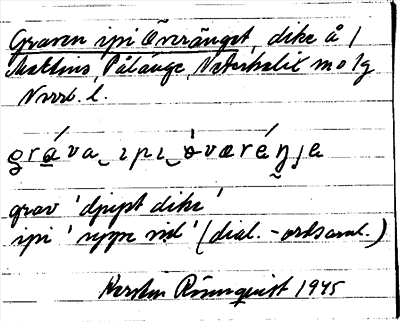 Graven ipi Överänget, dike å /
Mattins, Pålänge, Nederkalix m o lg
Nrrb. l.
grava ͜ ıpı ͜ óværéŋɟe
grav 'djupt dike'
ipi 'uppe vid' (dial.-ordsaml.)
Kerstin Rönnquist 1945